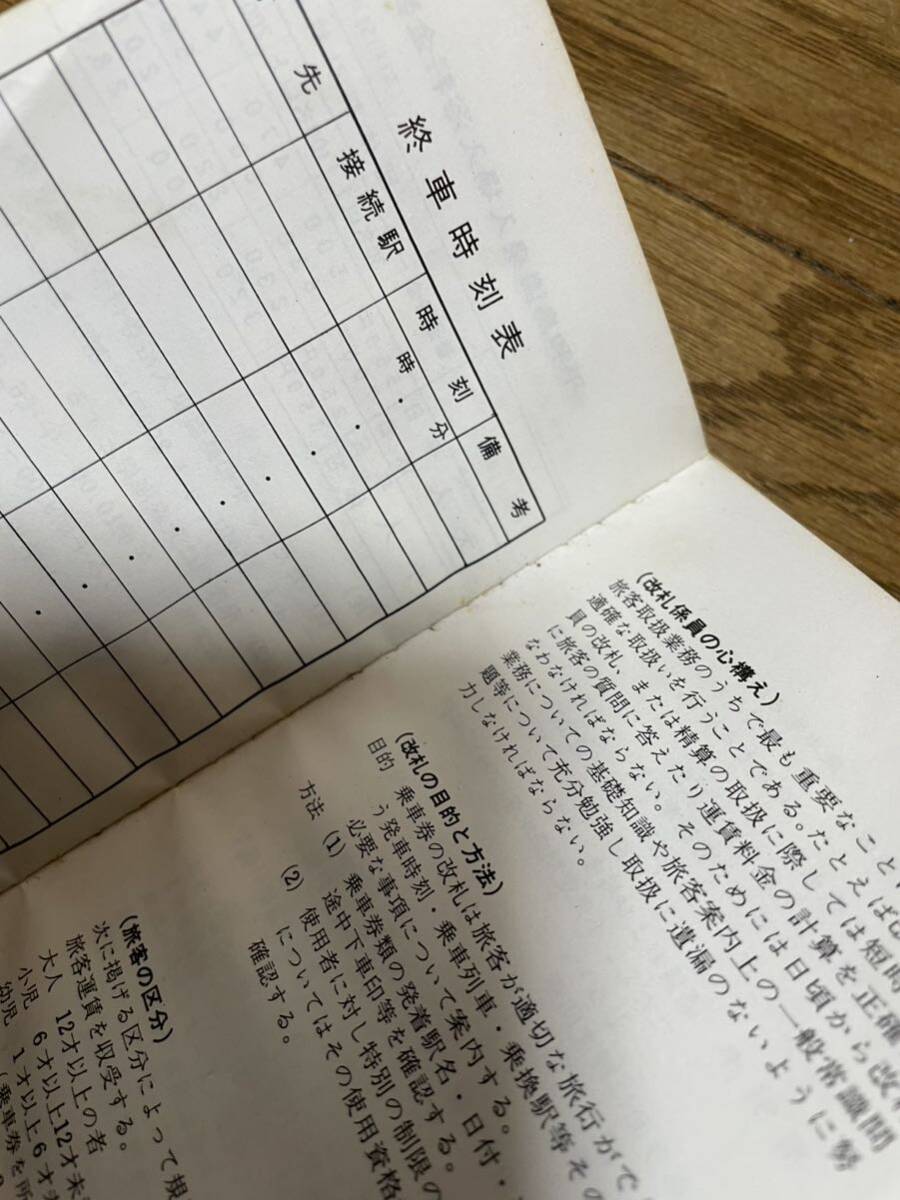 終車時刻表
先 接続駅 時刻 備考
時 分
(改札係員の心構え)
旅客取扱業務のうちで最も重要なこと
適確な取扱いを行うことである。たとえば
員の改札、または精算の取扱に際しては短時
に旅客の質問に答えたり運賃料金の計算を正確
なわなければならない。そのためには日頃から改
業務についての基礎知識や旅客案内上の一般常識問
題等について充分勉強し取扱に遺漏のないように努
力しなければならない。
(改札の目的と方法)
目的 乗車券の改札は旅客が適切な旅行がで
う発車時刻・乗車列車・乗換駅等その
必要な事項について案内する。
方法 (1) 乗車券類の発着駅名・日付・
途中下車印等を確認する。
(2) 使用者に対し特別の制限の
についてはその使用資格
確認する。
(旅客の区分)
次に掲げる区分によって規
旅客運賃を収受する。
大人 12才以上の者
小児 6才以上12才未
幼児 1才以上6才
(乗車券を所